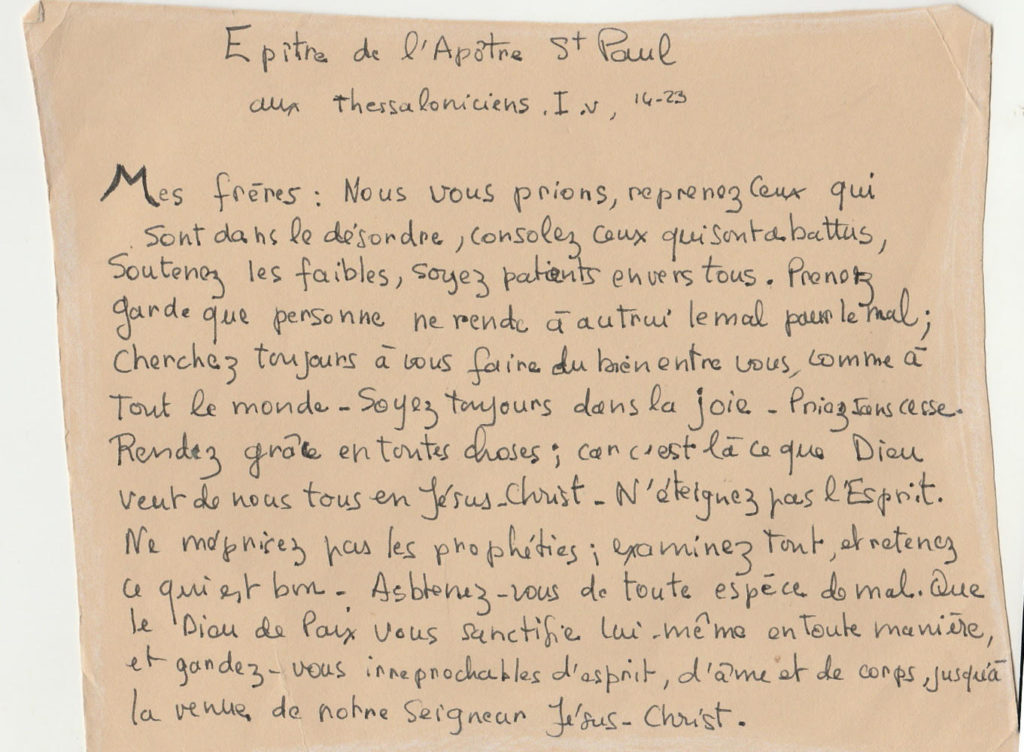 Epître de l'Apôtre St Paul
aux Thessaloniciens . I . v , 14-23
Mes frères : Nous vous prions, reprenez ceux qui
sont dans le désordre , consolez ceux qui sont abattus,
Soutenez les faibles, soyez patients envers tous . Prenez
garde que personne ne rende à autrui le mal pour le mal ;
Cherchez toujours à vous faire du bien entre vous, comme à
tout le monde - Soyez toujours dans la joie - Priez sans cesse.
Rendez grâce en toutes choses ; car c'est là ce que Dieu
veut de nous tous en Jésus-Christ - N'éteignez pas l'Esprit.
Ne méprisez pas les prophéties ; examinez tout, et retenez
ce qui est bon - Asbtenez-vous de toute espèce de mal. Que
le Dieu de Paix vous sanctifie lui-même en toute manière,
et gardez-vous irreprochables d'esprit, d'âme et de corps, jusqu'à
la venue de notre Seigneur Jésus-Christ .